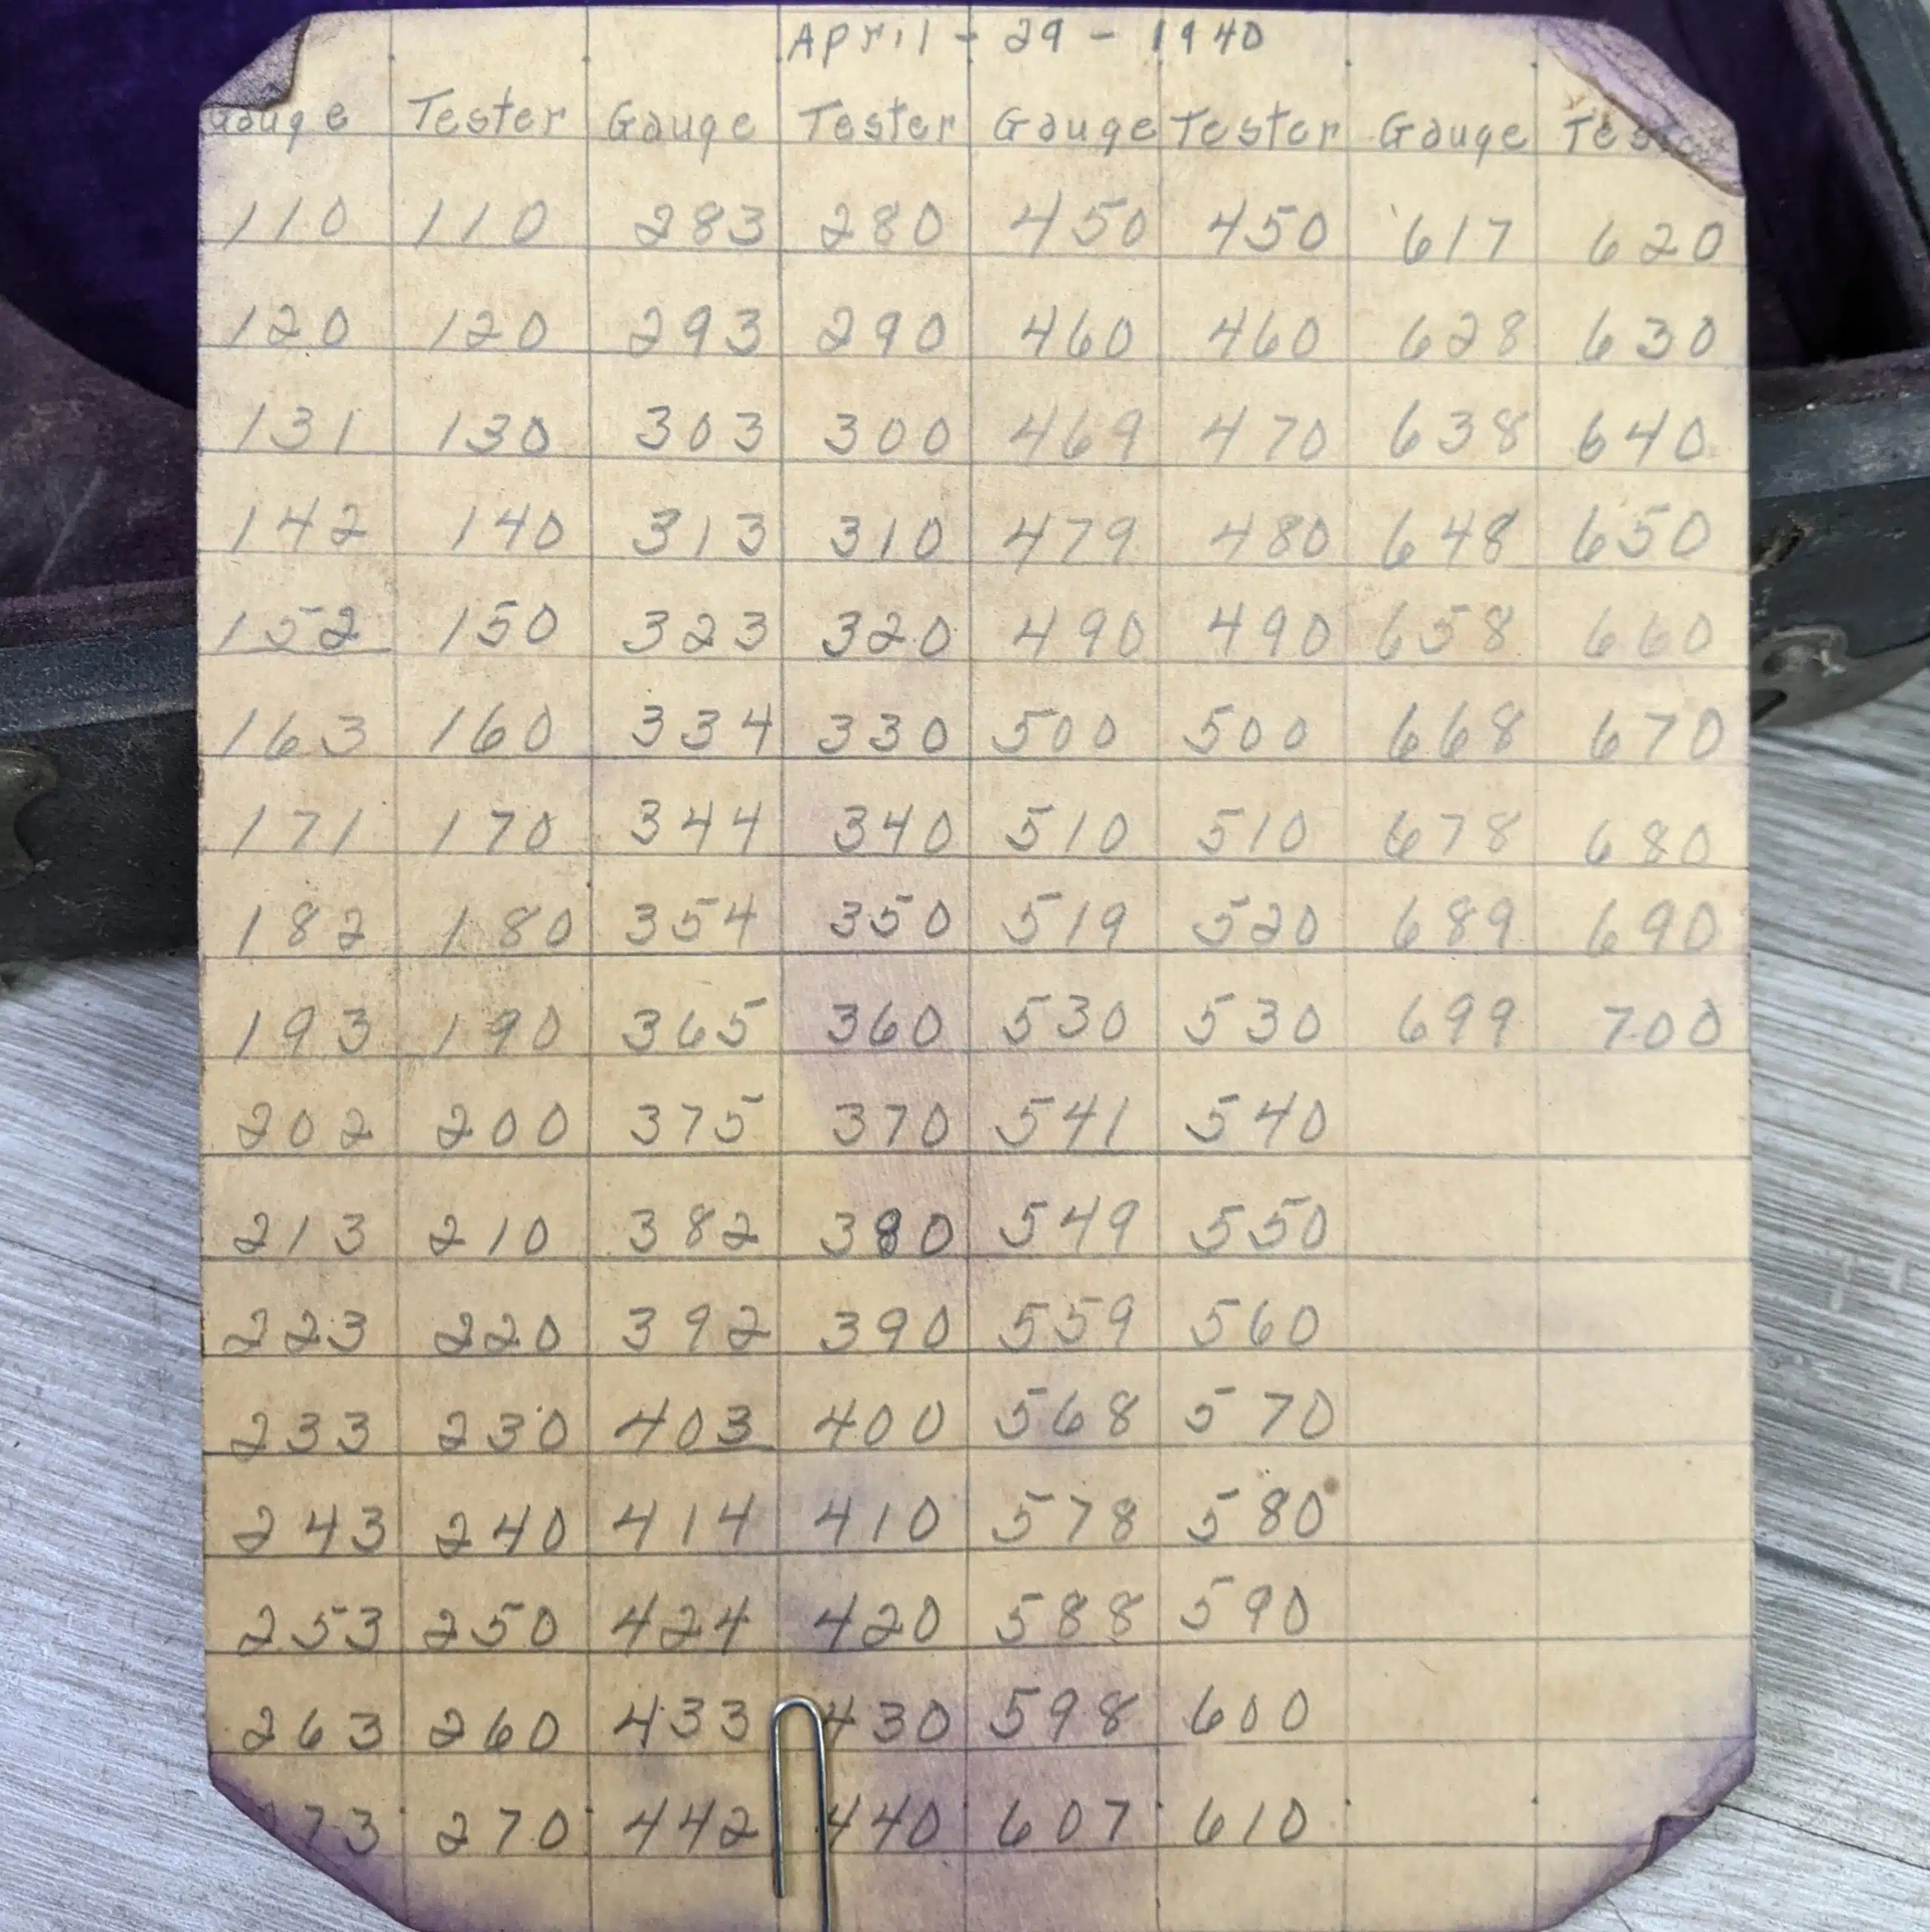 April - 29 - 1940
Gauge Tester Gauge Tester Gauge Tester Gauge
110 110 283 280 450 450 617 620
120 120 293 290 460 460 628 630
131 130 303 300 469 470 638 640
142 140 313 310 479 480 648 650
152 150 323 320 490 490 658 660
163 160 334 330 500 500 668 670
171 170 344 340 510 510 678 680
182 180 354 350 519 520 689 690
193 190 365 360 530 530 699 700
202 200 375 370 541 540
213 210 382 380 549 550
223 220 392 390 559 560
233 230 403 400 568 570
243 240 414 410 578 580
253 250 424 420 588 590
263 260 433 430 598 600
270 442 440 607 610